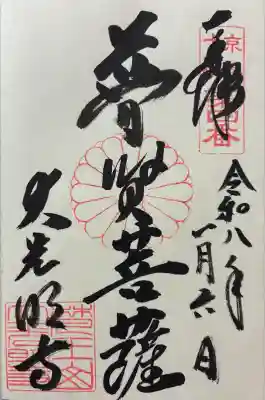 奉拝
令和八年一月六日
普賢菩薩
大光明寺